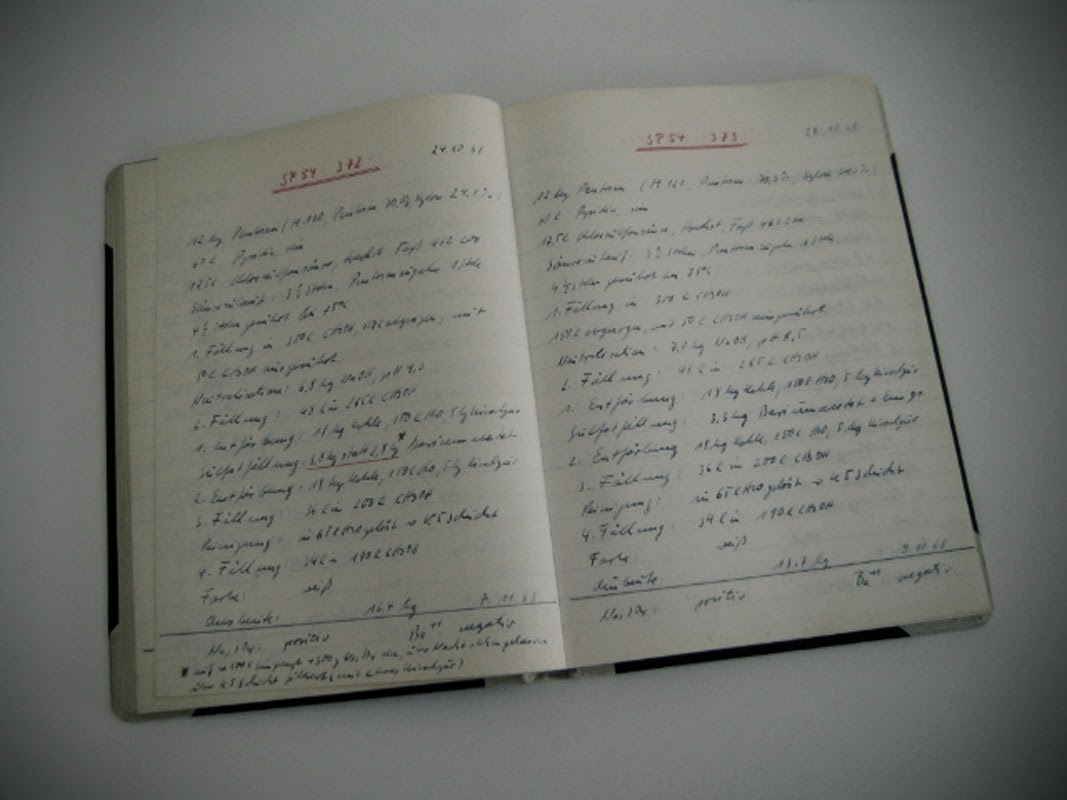 SP54 372
24.10.68
12 kg Pentosan (M 120, Pentosan 70,0%, Xylose 24,1%)
60 l Pyridin
17,5 l Chlorsulfonsäure, Hoechst, Faß 462 200
Säureeinlauf: 3 ½ Stdn, Pentosanzugabe 1 Stde
4 ½ Stdn gerührt bei 75°C
1. Fällung in 300 l CH3OH, abgezogen, mit
50 l CH3OH ausgerührt
Neutralisation: 6,8 kg NaOH, pH 9,2
2. Fällung: 45 l in 265 l CH3OH
1. Entfärbung: 18 kg Kohle, 150 l H2O, 5 kg Kieselgur
Sulfatfällung: 3,8 kg statt 2,8 kg* Bariumacetat
2. Entfärbung: 18 kg Kohle, 150 l H2O, 5 kg Kieselgur
3. Fällung: 36 l in 200 l CH3OH
Reinigung: in 65 l H2O gelöst → K5 Schicht
4. Fällung 34 l in 190 l CH3OH
Farbe: weiß
Ausbeute: 16,4 kg 7.11.68
Na2SO4: positiv Ba++: negativ
* über Nacht stehen gelassen
über K5 Schicht filtriert (mit etwas Kieselgur)
SP54 373
28.10.68
12 kg Pentosan (M 120, Pentosan 70,3%, Xylose
60 l Pyridin
17,5 l Chlorsulfonsäure, Hoechst, Faß 462 200
Säureeinlauf: 3 ½ Stdn, Pentosanzugabe 1 Stde
4 ½ Stdn gerührt bei 75°C
1. Fällung in 300 l CH3OH
150 l abgezogen, mit 50 l CH3OH ausgerührt
Neutralisation: 7,0 kg NaOH, pH 8,5
2. Fällung: 45 l in 265 l CH3OH
1. Entfärbung: 18 kg Kohle, 150 l H2O, 5 kg Kieselgur
Sulfatfällung: 3,5 kg Bariumacetat
2. Entfärbung: 18 kg Kohle, 150 l H2O, 5 kg Kieselgur
3. Fällung: 36 l in 200 l CH3OH
Reinigung: in 65 l H2O gelöst → K5 Schicht
4. Fällung: 34 l in 190 l CH3OH
Farbe: weiß
Ausbeute: 15.7 kg 9.11.68
Na2SO4: positiv Ba++: negativ